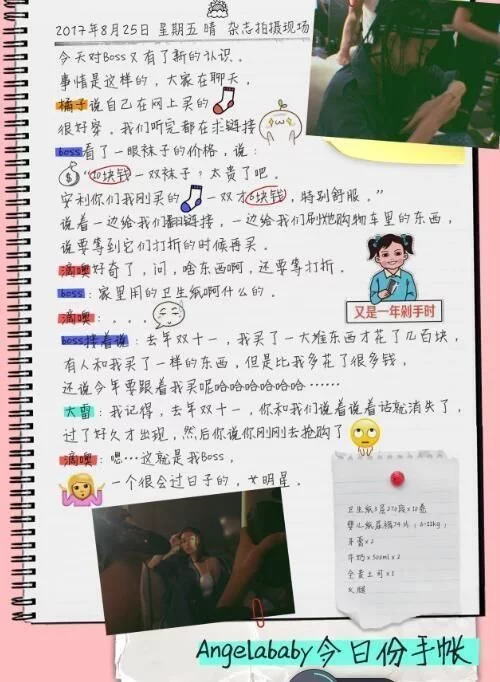 2017年8月25日 星期五 晴 杂志拍摄现场
今天对Boss又有了新的认识。
事情是这样的，大家在聊天，
橘子说自己在网上买的
很好穿。我们听完都在求链接
boss看了一眼袜子的价格，说：
“10块钱一双袜子？太贵了吧。
安利你们我刚买的 一双才6块钱，特别舒服。”
说着一边给我们翻链接，一边给我们刷她购物车里的东西，
说要等到它们打折的时候再买。
滴噢好奇了，问，啥东西啊，还要等打折。
boss：家里用的卫生纸啊什么的。
滴噢：。。。
又是一年剁手时
boss接着说：去年双十一，我买了一大堆东西才花了几百块，
有人和我买了一样的东西，但是比我多花了很多钱，
还说今年要跟着我买呢哈哈哈哈哈哈……
大雷：我记得，去年双十一，你和我们说着说着话就消失了，
过了好久才出现，然后你说你刚刚去抢购了
滴噢：嗯…这就是我Boss，
一个很会过日子的，女明星。
卫生纸3层270段×10卷
婴儿纸尿裤74片（6-11kg）
牙膏×2
牛奶×500ml×2
全麦土司×1
火腿
Angelababy今日份手帐